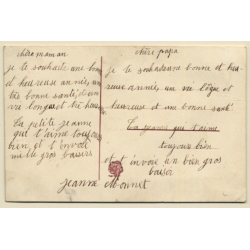 chère maman
je te souhaite une bon
d heureuse année, un
très bonne santé, d'un
vie longue et très heur
La petite jeanne
qui t'aime toujour
bien et t'envoi
mille gros baisers
chère papa
je te souhaite bonne et heu
reuse année, un vie longue et
heureuse et une bonne santé
La jeanne qui t'aime
toujour bien
et t'envoie un bien gros
baiser
jeanne Monnet